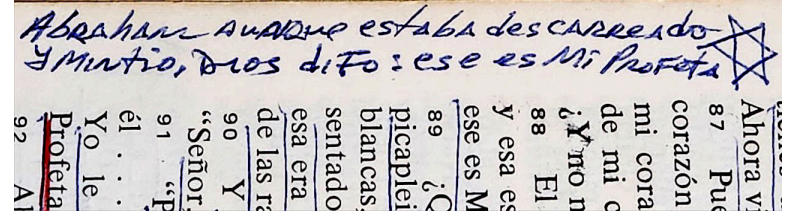 Abraham AUNQUE estaba descarreado
Y Mintio, Dios difo: ese es Mi Profeta
Ahora vi
87 Pue
corazón
mi cora
de mi c
¿Y no n
88 El
y esa es
ese es M
89 ¿Q
picaplei
blancas,
sentado
esa era
de las ra
90 Y
“Señor,
91 “P
él . . .
Yo le
Profeta
92 Al